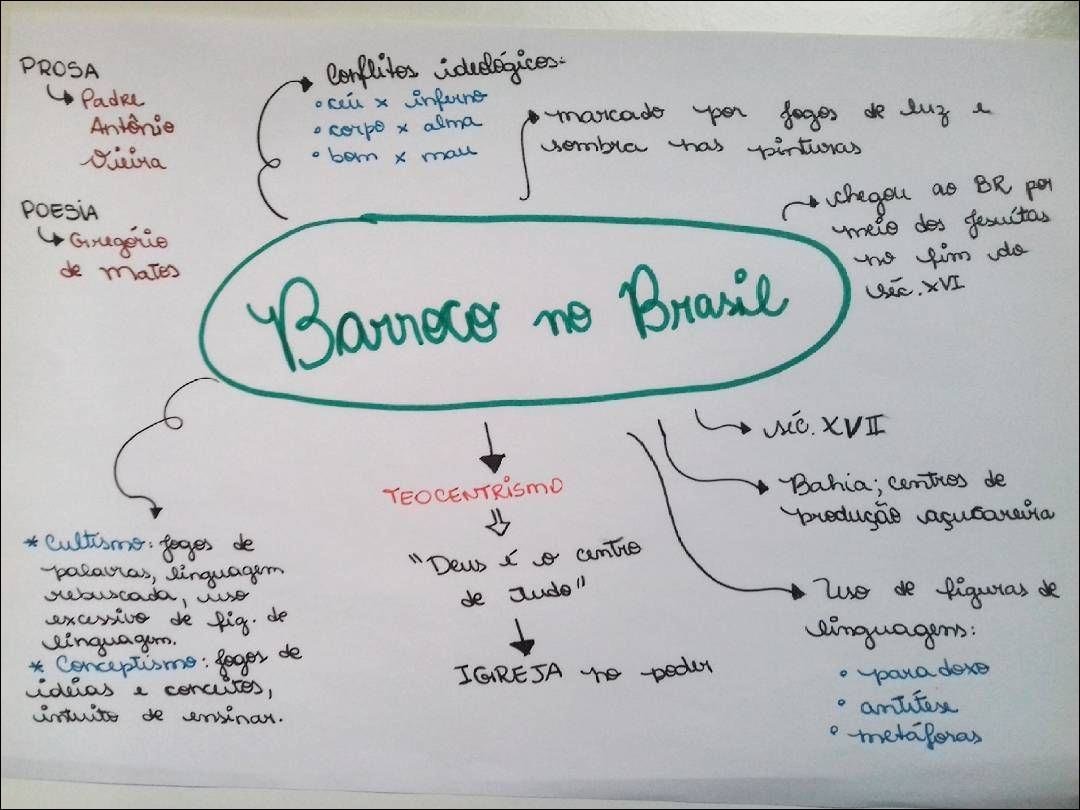 PROSA
Padre
Antônio
Vieira
POESIA
Gregório
de Matos
Conflitos ideológicos:
• céu x inferno
• corpo x alma
• bom x mau
marcado por jogos de luz e
sombra nas pinturas
chegou ao BR por
meio dos Jesuítas
no fim do
séc. XVI
Barroco no Brasil
séc. XVII
Bahia; centros de
produção açucareira
Uso de figuras de
linguagens:
• paradoxo
• antítese
• metáforas
TEOCENTRISMO
"Deus é o centro
de tudo"
IGREJA no poder
* Cultismo: jogos de
palavras, linguagem
rebuscada, uso
excessivo de fig. de
linguagem.
* Conceptismo: jogos de
idéias e conceitos,
intuito de ensinar.